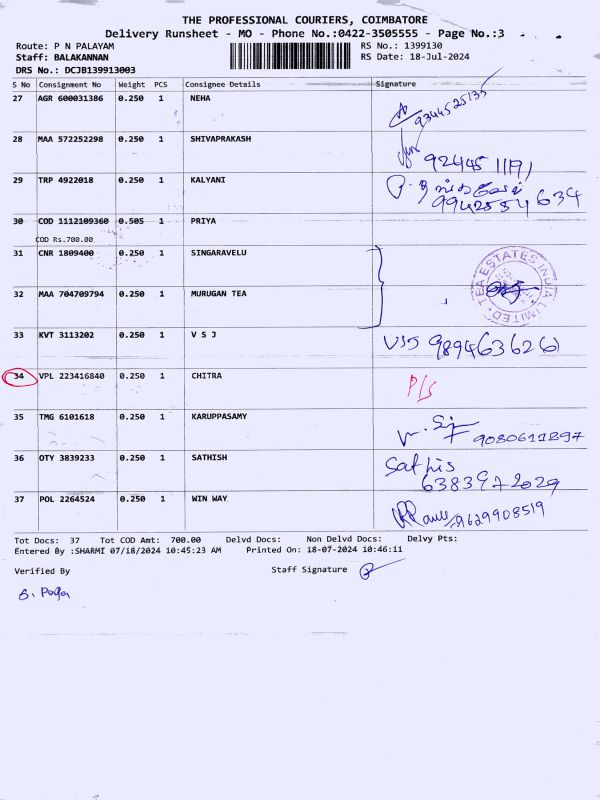 THE PROFESSIONAL COURIERS, COIMBATORE
Delivery Runsheet - MO - Phone No.:0422-3505555 - Page No.:3
Route: P N PALAYAM
RS No.: 1399130
Staff: BALAKANNAN
RS Date: 18-Jul-2024
DRS No.: DCJB139913003
S No Consignment No Weight PCS Consignee Details Signature
27 AGR 600031386 0.250 1 NEHA
9344525135
28 MAA 572252298 0.250 1 SHIVAPRAKASH
9244511191
29 TRP 4922018 0.250 1 KALYANI
9942554634
30 COD 1112109360 0.505 1 PRIYA
COD Rs.700.00
31 CNR 1809400 0.250 1 SINGARAVELU
TEA ESTATES INDIA LIMITED
32 MAA 704709794 0.250 1 MURUGAN TEA
33 KVT 3113202 0.250 1 V S J
VSJ 9894636260
34 VPL 223416840 0.250 1 CHITRA
P/S
35 TMG 6101618 0.250 1 KARUPPASAMY
9080611897
36 OTY 3839233 0.250 1 SATHISH
Sathis
6383972029
37 POL 2264524 0.250 1 WIN WAY
9629908519
Tot Docs: 37 Tot COD Amt: 700.00 Delvd Docs: Non Delvd Docs: Delvy Pts:
Entered By :SHARMI 07/18/2024 10:45:23 AM Printed On: 18-07-2024 10:46:11
Verified By
Staff Signature